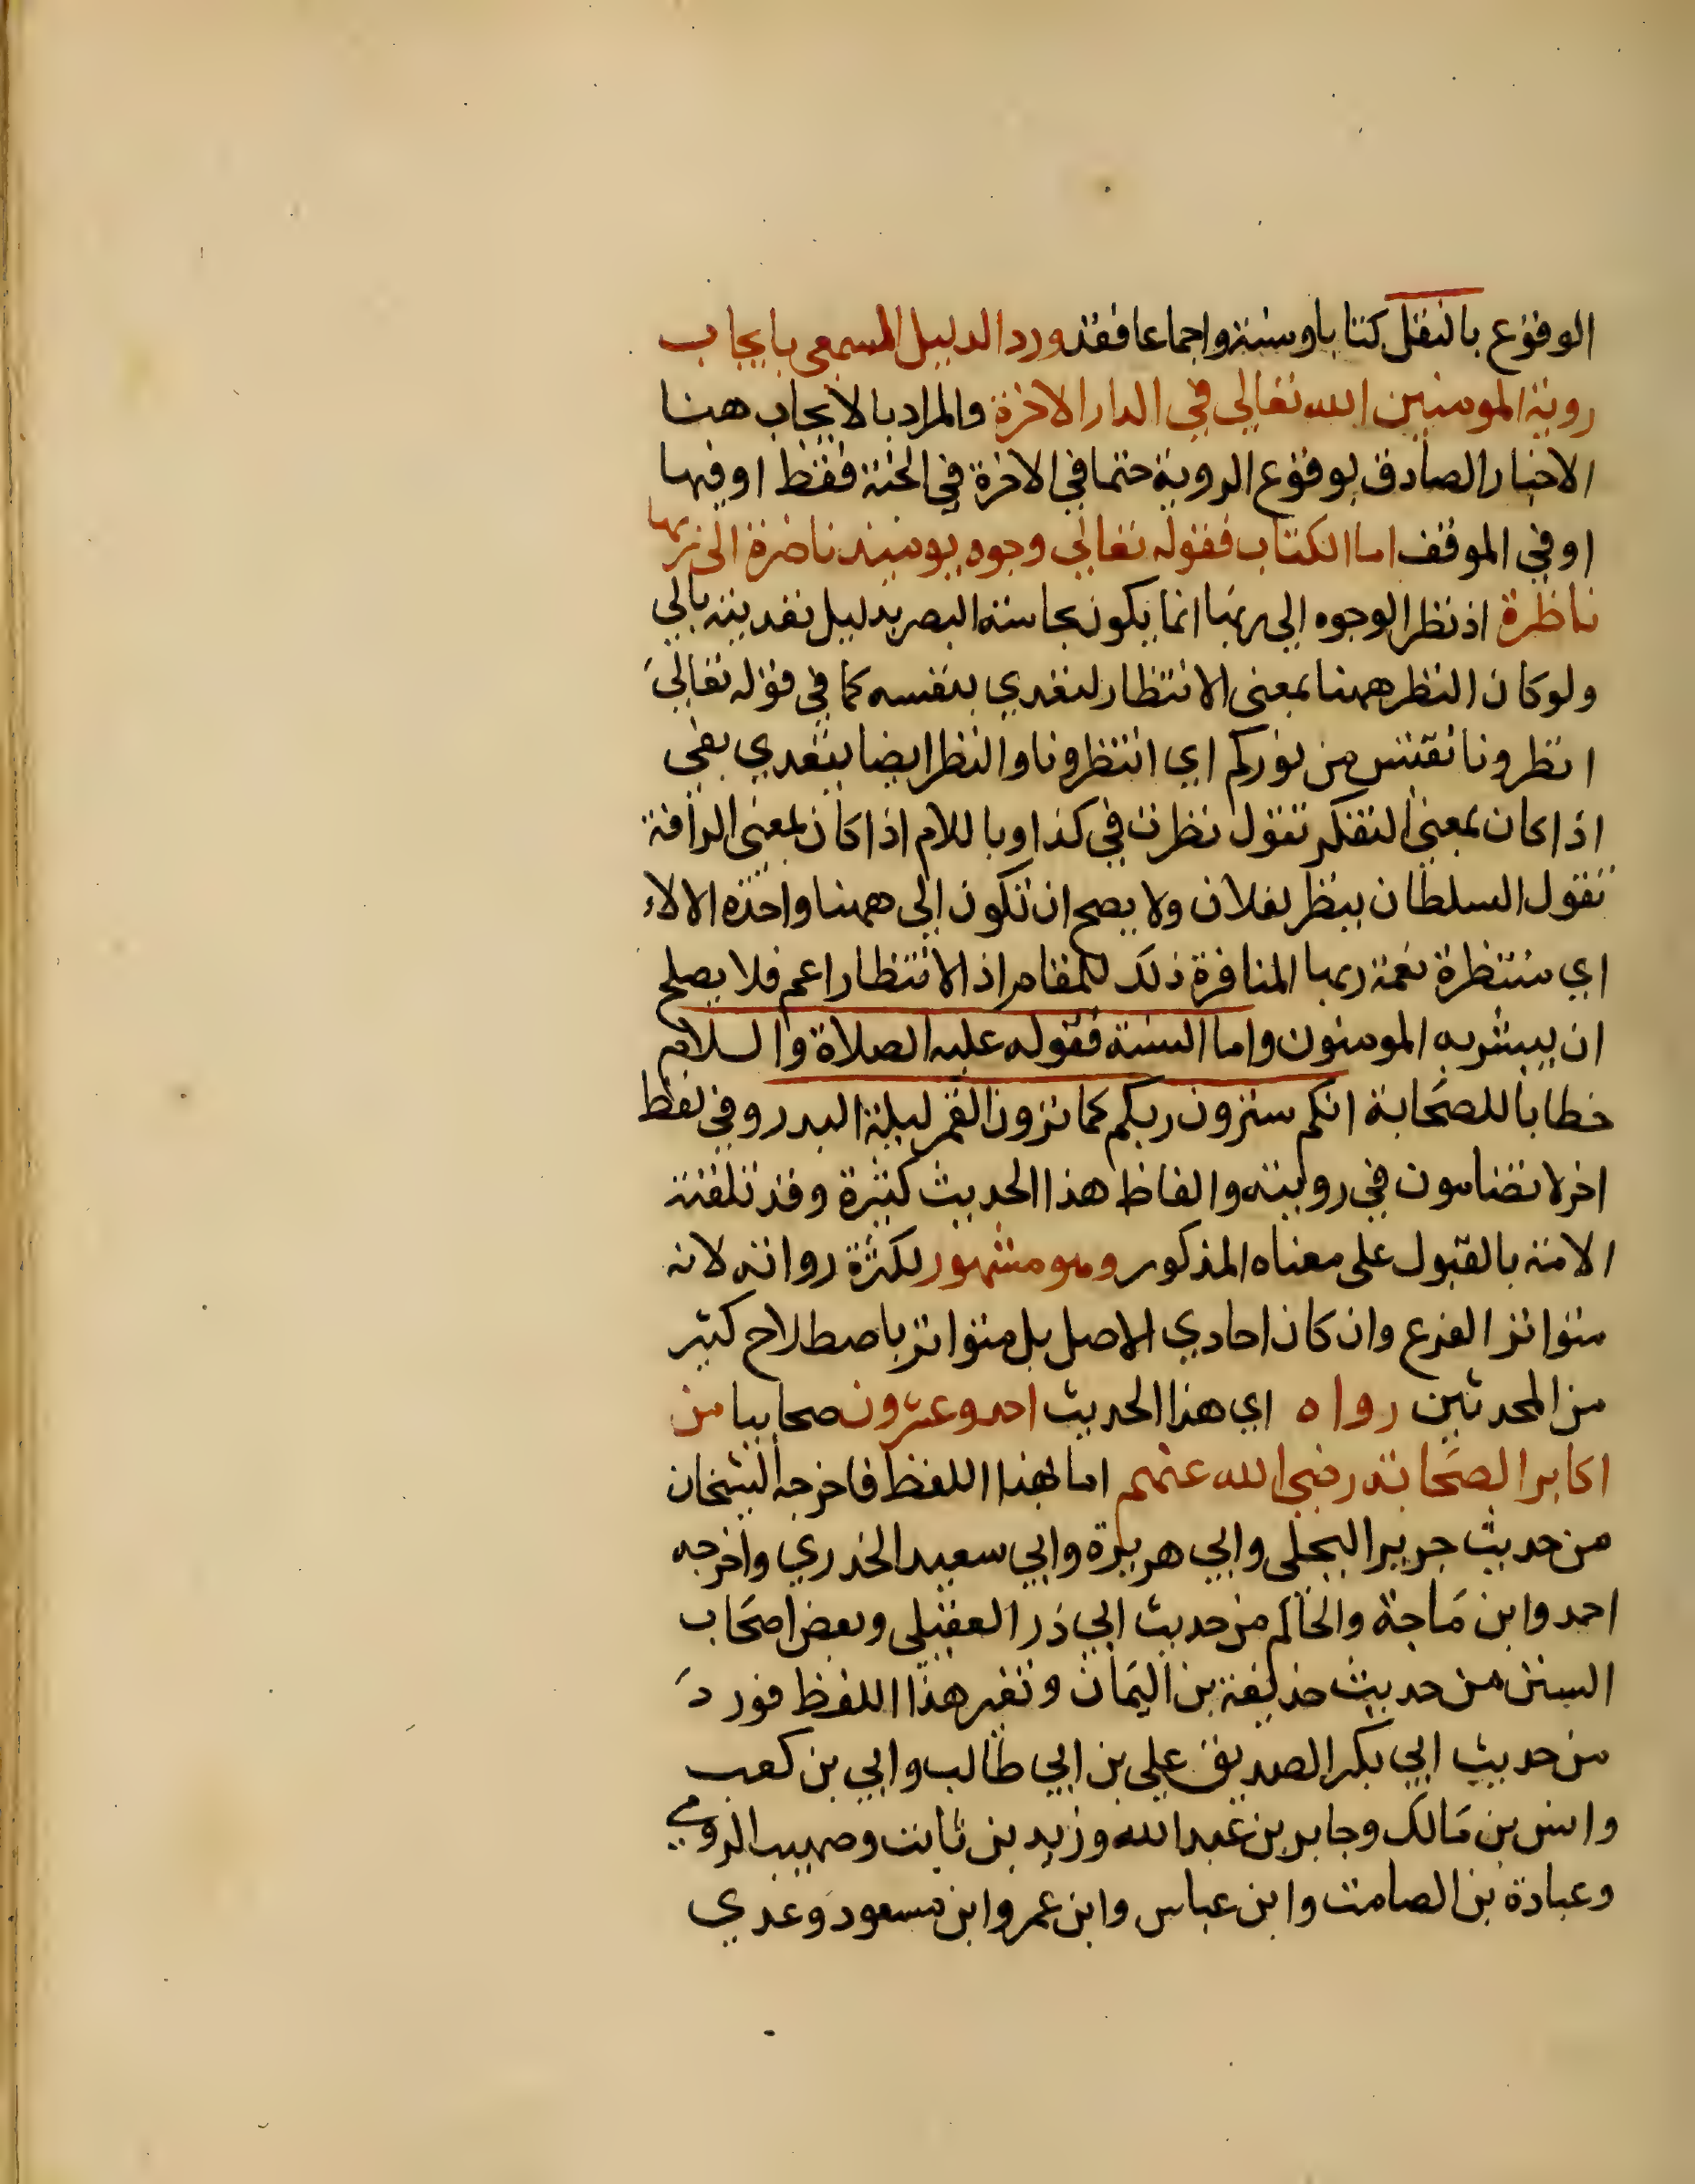 الوقوع بالنقل كتابا وسنة واجماعا فقد ورد الدليل السمعي بايجاب
روية المومنين الله تعالي في الدار الاخرة والمراد بالايجاب هنا
الاخبار الصادق بوقوع الروية حتما في الاخرة في الجنة فقط او فيها
او في الموقف اما الكتاب فقوله تعالي وجوه يوميذ ناضرة الى ربها
ناظرة اذ نظر الوجوه الي ربها انما يكون بحاسة البصر بدليل تعديته بالي
ولو كان النظر ههنا بمعني الانتظار لتعدي بنفسه كما في قوله تعالي
انظرونا نقتبس من نوركم اي انتظرونا والنظر ايضا يتعدي بفي
اذا كان بمعني التفكر تقول نظرت في كذا وباللام اذا كان بمعني الرافة
تقول السلطان ينظر لفلان ولا يصح ان تكون الي ههنا واحدة الالاء
اي منتظرة نعمة ربها المنافرة ذلك للمقام اذ الانتظار اعم فلا يصلح
ان يبشر به المومنون واما السنة فقوله عليه الصلاة والسلام
خطابا للصحابة انكم سترون ربكم كما ترون القمر ليلة البدر وفي لفظ
اخر لا تضامون في رويته والفاظ هذا الحديث كثيرة وقد تلقته
الامة بالقبول على معناه المذكور وهو مشهور لكثرة رواته لانه
متواتر الفرع وان كان احادي الاصل بل متواتر باصطلاح كثير
من المحدثين رواه اي هذا الحديث احد وعشرون صحابيا من
اكابر الصحابة رضي الله عنهم اما بهذا اللفظ فاخرجه الشيخان
من حديث جرير البجلي وابي هريرة وابي سعيد الخدري واخرجه
احمد وابن ماجة والحاكم من حديث ابي ذر العقيلي وبعض اصحاب
السنن من حديث حذيفة بن اليمان وبغير هذا اللفظ فورد
من حديث ابي بكر الصديق علي بن ابي طالب وابي بن كعب
وانس بن مالك وجابر بن عبد الله وزيد بن ثابت وصهيب الرومي
وعبادة بن الصامت وابن عباس وابن عمر وابن مسعود وعدي